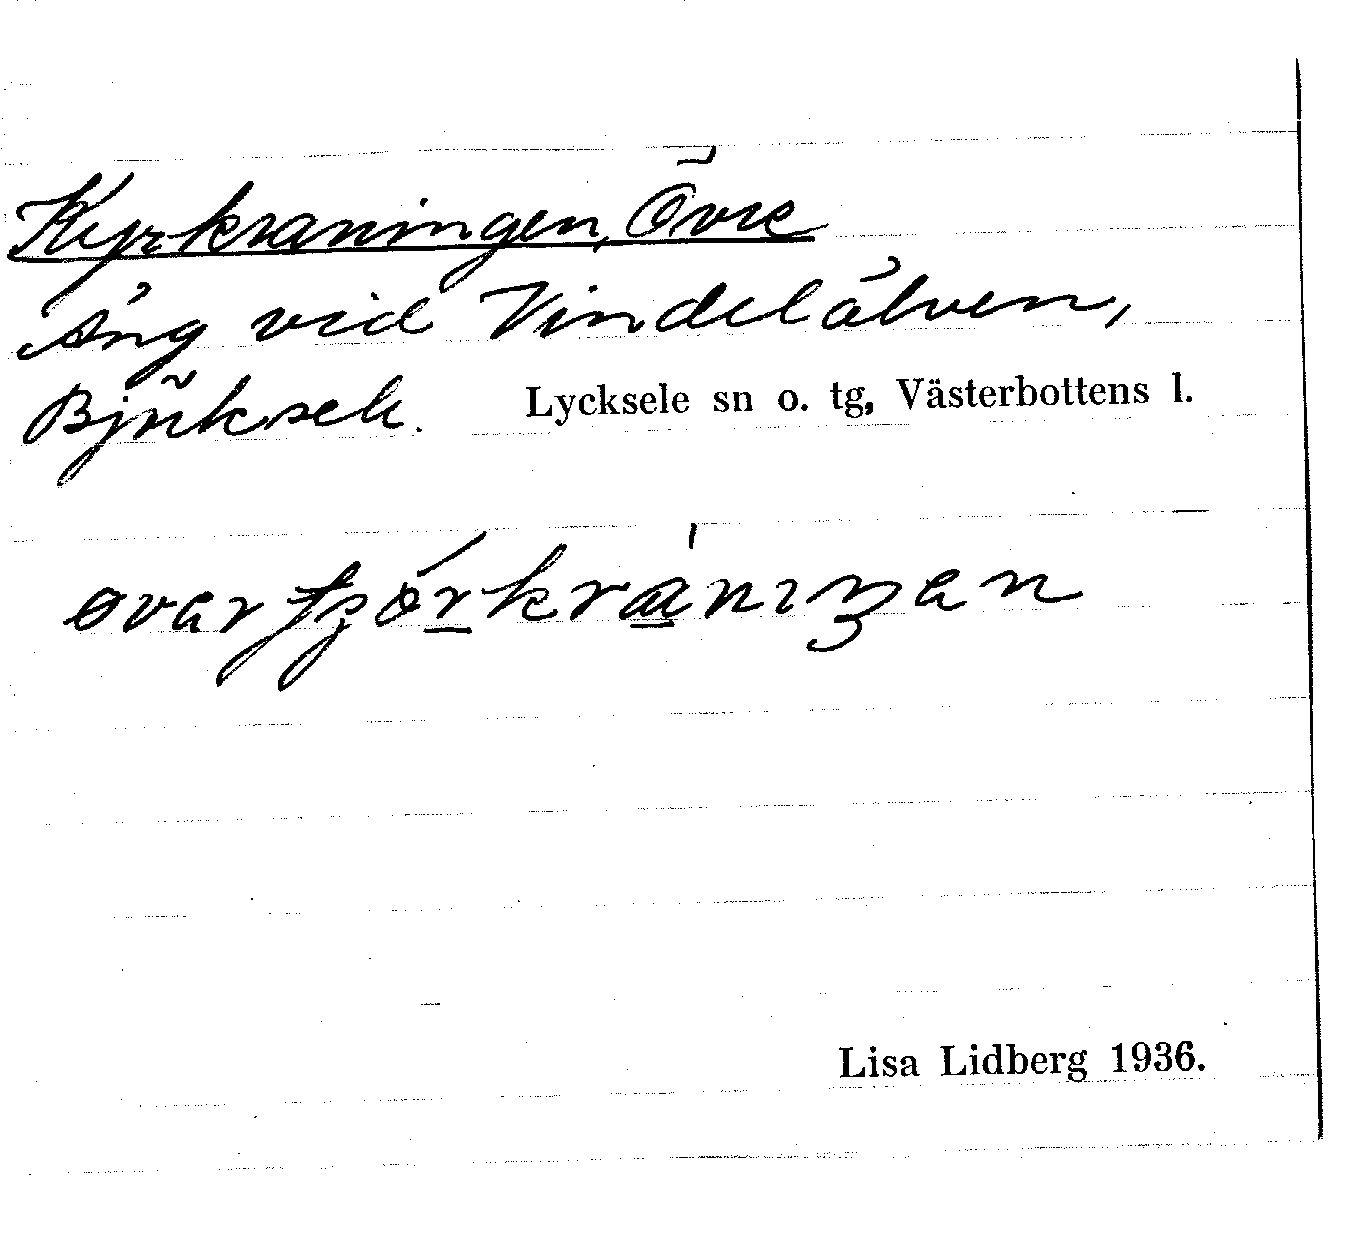 Kyrkraningen, Övre
Äng vid Vindelälven,
Björksele. Lycksele sn o. tg, Västerbottens l.
Lisa Lidberg 1936.